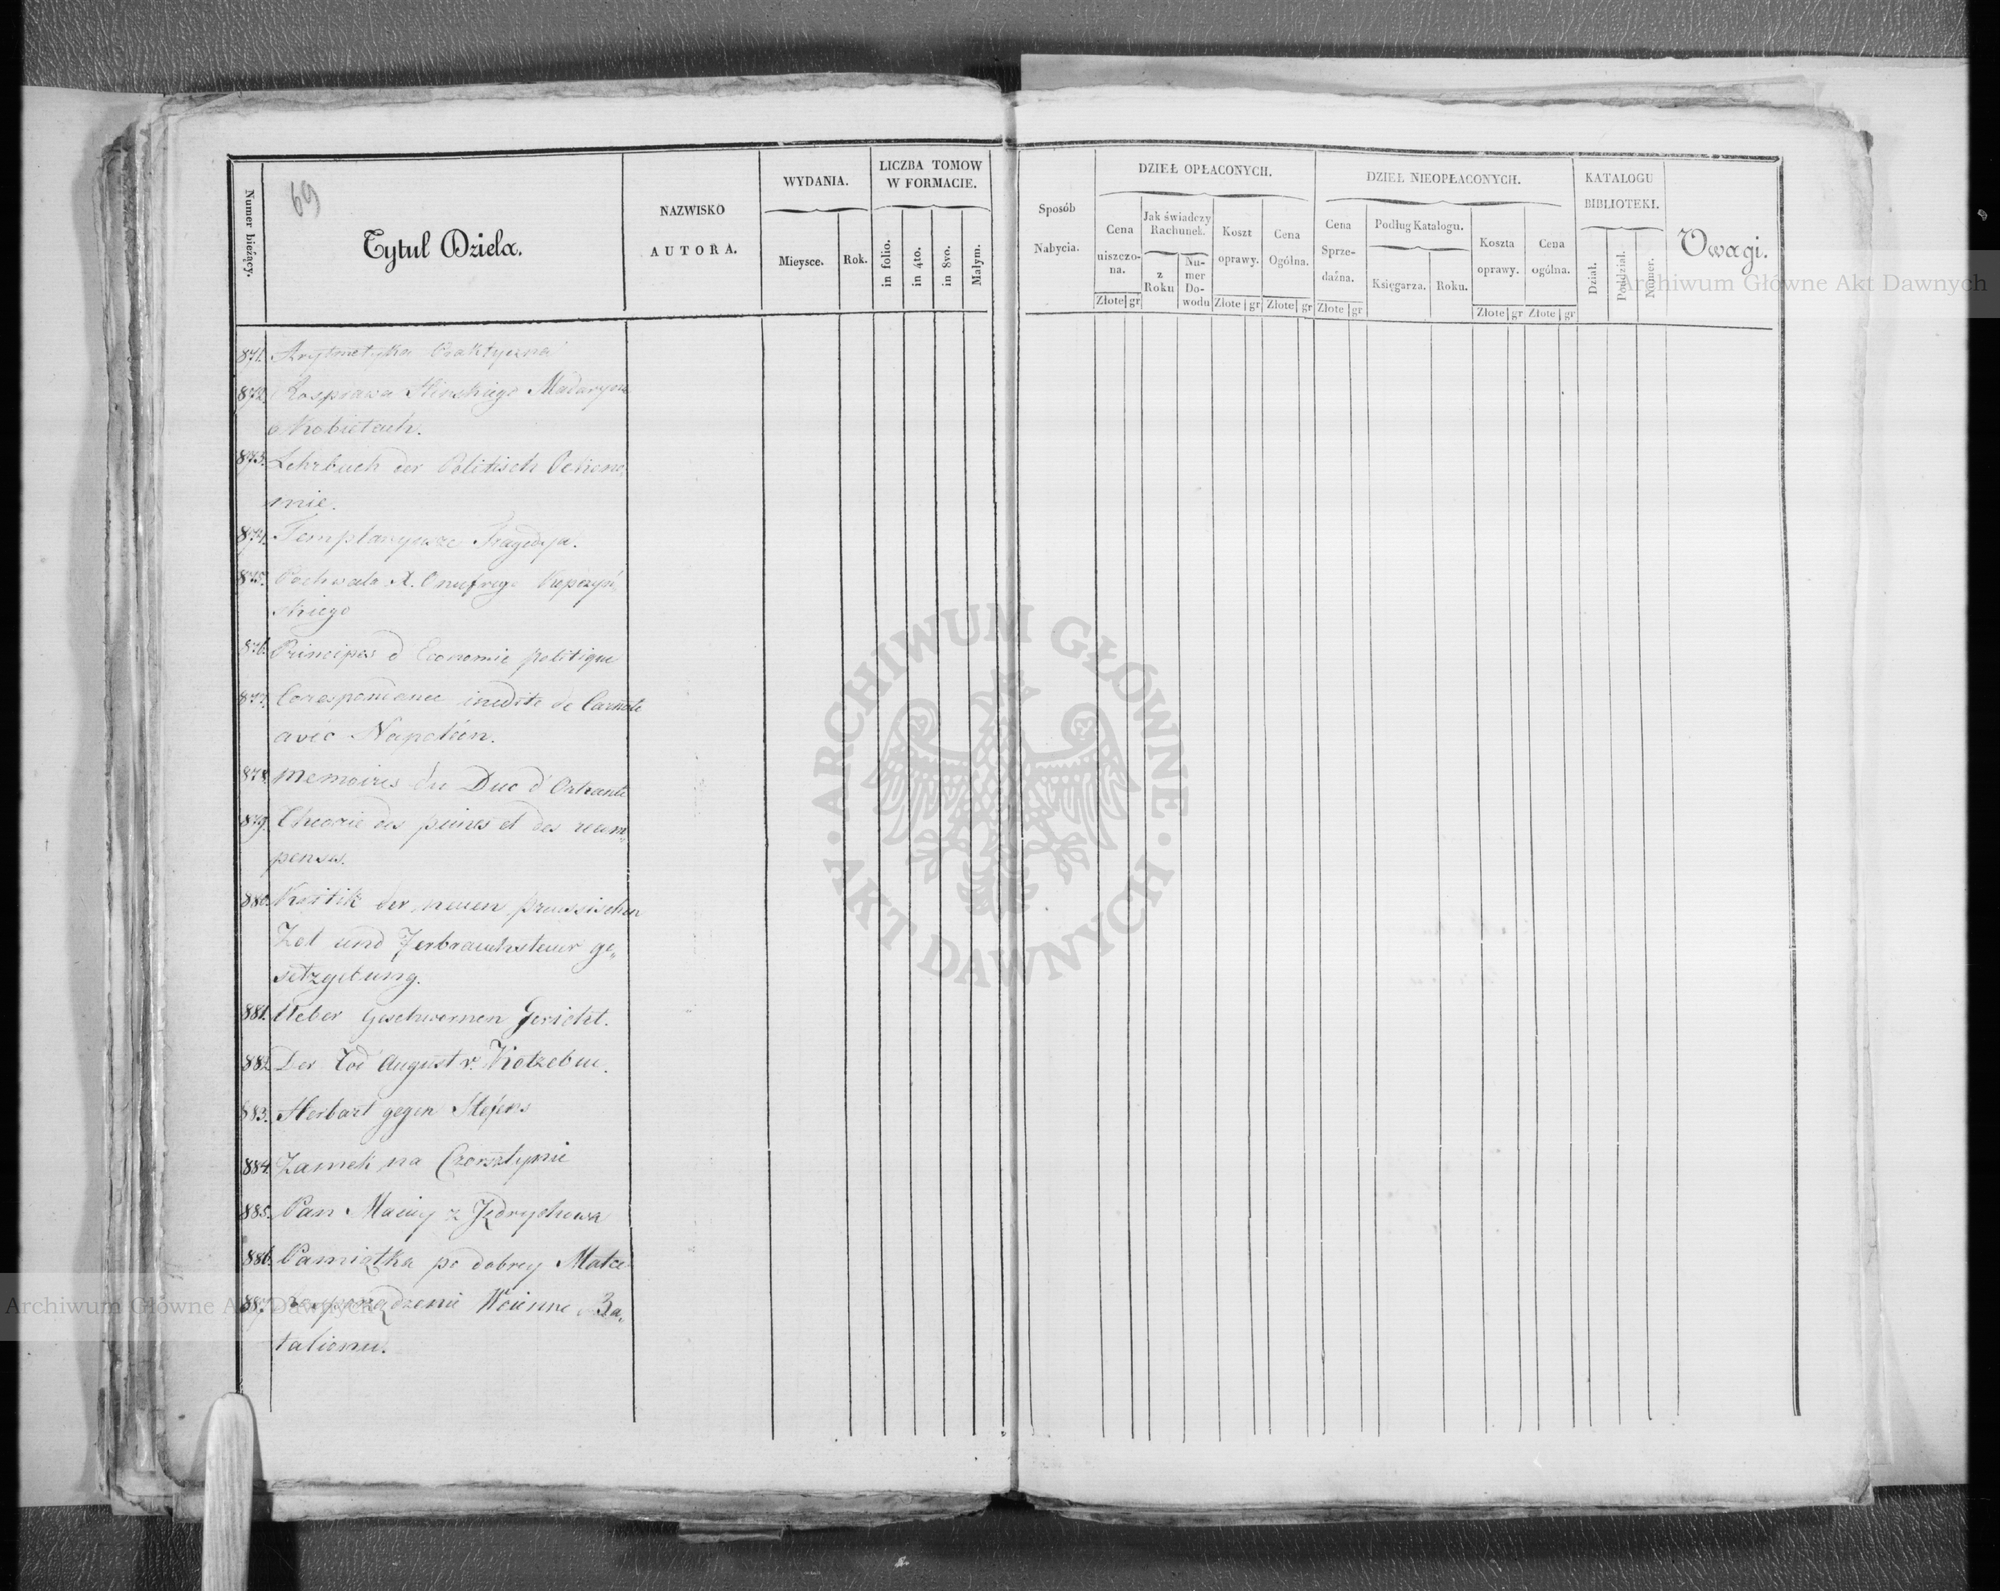 69
Numer bieżący.
Tytuł Dzieła.
NAZWISKO
AUTORA.
WYDANIA.
Mieysce.
Rok.
LICZBA TOMOW
W FORMACIE.
in folio.
in 4to.
in 8vo.
Małym.
Sposób
Nabycia.
DZIEŁ OPŁACONYCH.
Cena
uiszczo-
na.
Złote gr
Jak świadczy
Rachunek.
z
Roku
Nu-
mer
Do-
wodu
Koszt
oprawy.
Złote gr
Cena
Ogólna.
Złote gr
DZIEŁ NIEOPŁACONYCH.
Cena
Sprze-
daźna.
Złote gr
Podług Katalogu.
Księgarza.
Roku.
Koszta
oprawy.
Złote gr
Cena
ogólna.
Złote gr
KATALOGU
BIBLIOTEKI.
Dział.
Poddział.
Numer.
Uwagi.
871. Arytmetyka Praktyczna
872. Rosprawa
o Kobietach.
873. Lehrbuch der Politisch Oekono
mie.
874. Templaryusze Tragedyja.
875. Pochwała X. Onufrego Kopczyń„
skiego
876. Principes d Economie politique
877. Corespondence inedite de Carnote
avec Napoleon.
878. Memoires du Duc d'Otrante
879. Theorie des peines et des recom„
penses.
880. Kritik der neuen preussischen
Zol und Verbrauchsteuer ge„
setzgebung.
881. Ueber Geschwornen Gericht.
882 Der Tod August v. Kotzebue.
883. Herbart gegen Stefens
884. Zamek na Czorsztynie
885. Pan Maciey z Jędrychowa
886. Pamiątka po dobrey Matce
887. rozporządzenie Woienne Ba„
talionu.
ARCHIWUM GŁÓWNE
AKT DAWNYCH
Archiwum Główne Akt Dawnych
Archiwum Główne Akt Dawnych